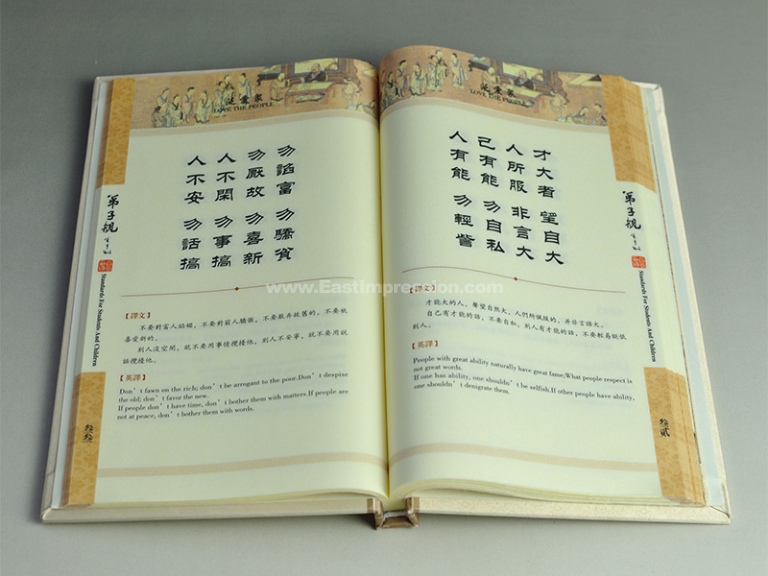 泛愛眾
LOVE THE PEOPLE
才大者 望自大
人所服 非言大
己有能 勿自私
人有能 勿輕訾
【譯文】
才能大的人，聲望自然大，人們所佩服的，并非言語大。
自己有才能的話，不要自私，別人有才能的話，不要輕易貶低
別人。
【英譯】
People with great ability naturally have great fame;What people respect is
not great words.
If one has ability, one shouldn’t be selfish.If other people have ability,
one shouldn’t denigrate them.
弟子規
Standards For Students And Children
叁貳
泛愛眾
LOVE THE PEOPLE
勿諂富 勿驕貧
勿厭故 勿喜新
人不閑 勿事搞
人不安 勿話搞
【譯文】
不要對富人諂媚，不要對窮人驕傲，不要厭弃故舊的，不要
喜愛新的。
別人沒空閑，就不要用事情攪擾他，別人不安寧，就不要用說
話攪擾他。
【英譯】
Don’t fawn on the rich; don’t be arrogant to the poor.Don’t despise
the old; don’t favor the new.
If people don’t have time, don’t bother them with matters.If people are
not at peace, don’t bother them with words.
弟子規
Standards For Students And Children
叁叁
www.EastImpression.com